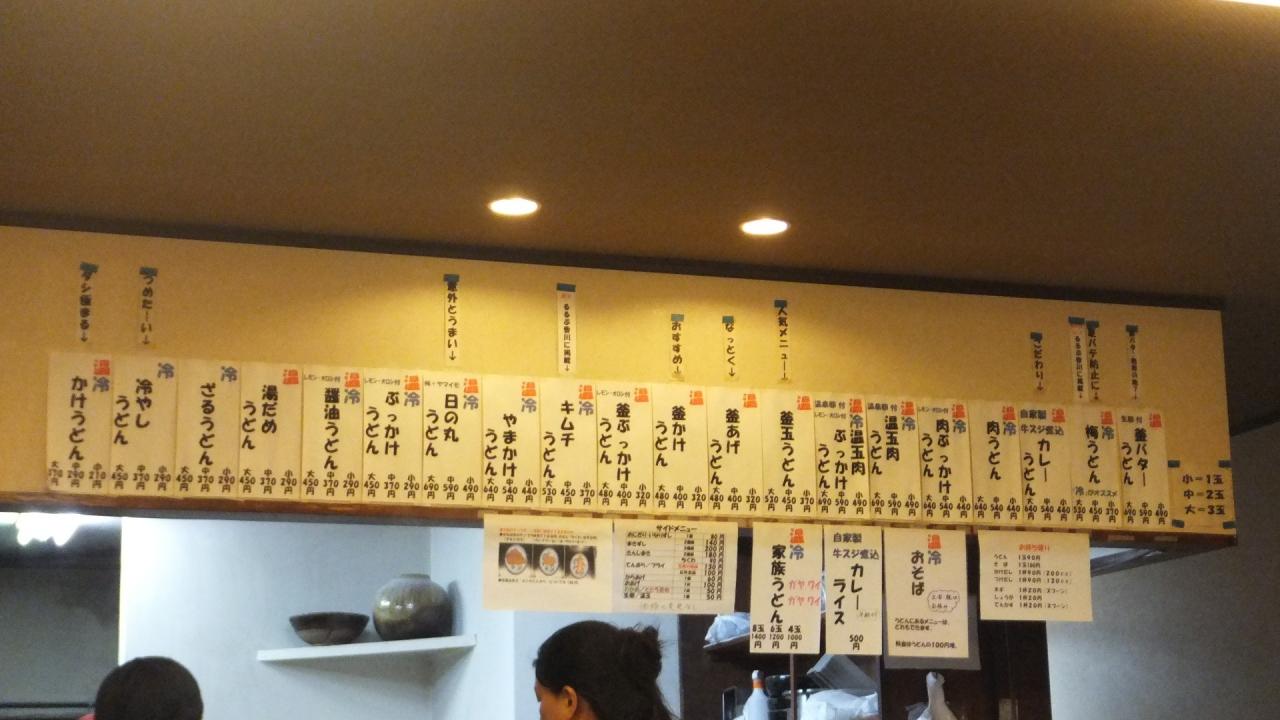 ダシ極まる↓
つめた〜い↓
意外とうまい↓
るるぶ香川に掲載↓
おすすめ↓
なっとく↓
人気メニュー↓
こだわり↓
るるぶ香川に掲載↓
夏バテ防止に↓
温 冷
かけうどん
大370円 中290円 小210円
冷
冷やしうどん
大450円 中370円 小290円
冷
ざるうどん
大450円 中370円 小290円
温
湯だめうどん
大450円 中370円 小290円
レモン・オロシ付
温 冷
醤油うどん
大450円 中370円 小290円
レモン・オロシ付
温 冷
ぶっかけうどん
大450円 中370円 小290円
日の丸うどん
大690円 中590円 小490円
温 冷
やまかけうどん
大640円 中540円 小440円
温 冷
キムチうどん
大530円 中450円 小370円
レモン・オロシ付
温
釜ぶっかけうどん
大480円 中400円 小320円
温
釜かけうどん
大480円 中400円 小320円
温
釜あげうどん
大480円 中400円 小320円
温
釜玉うどん
大530円 中450円 小370円
温泉卵付
レモン・オロシ付
温 冷
温玉肉ぶっかけうどん
大690円 中590円 小490円
温泉卵付
温 冷
温玉肉うどん
大690円 中590円 小490円
レモン・オロシ付
温 冷
肉ぶっかけうどん
大640円 中540円 小440円
温 冷
肉うどん
大640円 中540円 小440円
自家製
牛スジ煮込
温
カレーうどん
大640円 中540円 小440円
温 冷
梅うどん
冷がオススメ
大530円 中450円 小370円
生卵付
温
釜バターうどん
大690円 中590円 小490円
小=1玉
中=2玉
大=3玉
サイドメニュー
温 冷
家族うどん
ガヤガヤ ワイワイ
8玉1400円 6玉1200円 4玉1000円
自家製
牛スジ煮込
カレーライス
500円
温 冷
おそば
うどんにあるメニューは、
どれもできます。
料金はうどんの100円増。
お持ち帰り
うどん 1玉90円
そば 1玉100円
ネギ 1杯20円
しょうが 1杯20円
てんかす 1杯20円